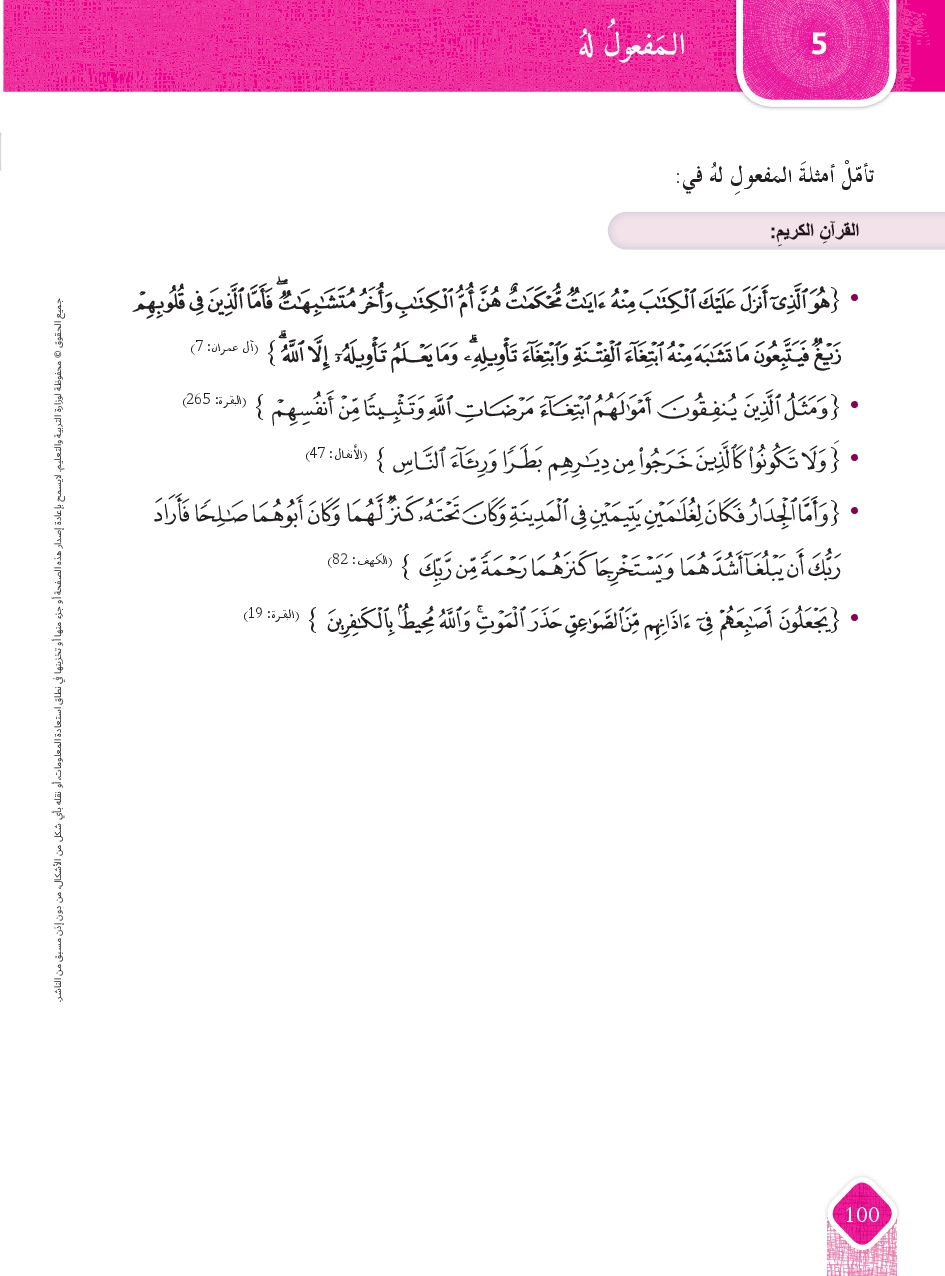 5
المَفعولُ لهُ
تأمّلْ أمثلةَ المفعولِ لهُ في:
القرآنِ الكريمِ:
• {هُوَ ٱلَّذِىٓ أَنزَلَ عَلَيْكَ ٱلْكِتَٰبَ مِنْهُ ءَايَٰتٌ مُّحْكَمَٰتٌ هُنَّ أُمُّ ٱلْكِتَٰبِ وَأُخَرُ مُتَشَٰبِهَٰتٌ ۖ فَأَمَّا ٱلَّذِينَ فِى قُلُوبِهِمْ
زَيْغٌ فَيَتَّبِعُونَ مَا تَشَٰبَهَ مِنْهُ ٱبْتِغَآءَ ٱلْفِتْنَةِ وَٱبْتِغَآءَ تَأْوِيلِهِۦ ۗ وَمَا يَعْلَمُ تَأْوِيلَهُۥٓ إِلَّا ٱللَّهُ ۗ } (آل عمران: 7)
• {وَمَثَلُ ٱلَّذِينَ يُنفِقُونَ أَمْوَٰلَهُمُ ٱبْتِغَآءَ مَرْضَاتِ ٱللَّهِ وَتَثْبِيتًا مِّنْ أَنفُسِهِمْ } (البقرة: 265)
• {وَلَا تَكُونُوا۟ كَٱلَّذِينَ خَرَجُوا۟ مِن دِيَٰرِهِم بَطَرًا وَرِئَآءَ ٱلنَّاسِ } (الأنفال: 47)
• {وَأَمَّا ٱلْجِدَارُ فَكَانَ لِغُلَٰمَيْنِ يَتِيمَيْنِ فِى ٱلْمَدِينَةِ وَكَانَ تَحْتَهُۥ كَنزٌ لَّهُمَا وَكَانَ أَبُوهُمَا صَٰلِحًا فَأَرَادَ
رَبُّكَ أَن يَبْلُغَآ أَشُدَّهُمَا وَيَسْتَخْرِجَا كَنزَهُمَا رَحْمَةً مِّن رَّبِّكَ } (الكهف: 82)
• {يَجْعَلُونَ أَصَٰبِعَهُمْ فِىٓ ءَاذَانِهِم مِّنَ ٱلصَّوَٰعِقِ حَذَرَ ٱلْمَوْتِ ۚ وَٱللَّهُ مُحِيطٌۢ بِٱلْكَٰفِرِينَ } (البقرة: 19)
جميع الحقوق © محفوظة لوزارة التربية والتعليم. لايسمح بإعادة إصدار هذه الصفحة أو جزء منها أو تخزينها في نطاق استعادة المعلومات، أو نقله بأي شكل من الأشكال، من دون إذن مسبق من الناشر.
100